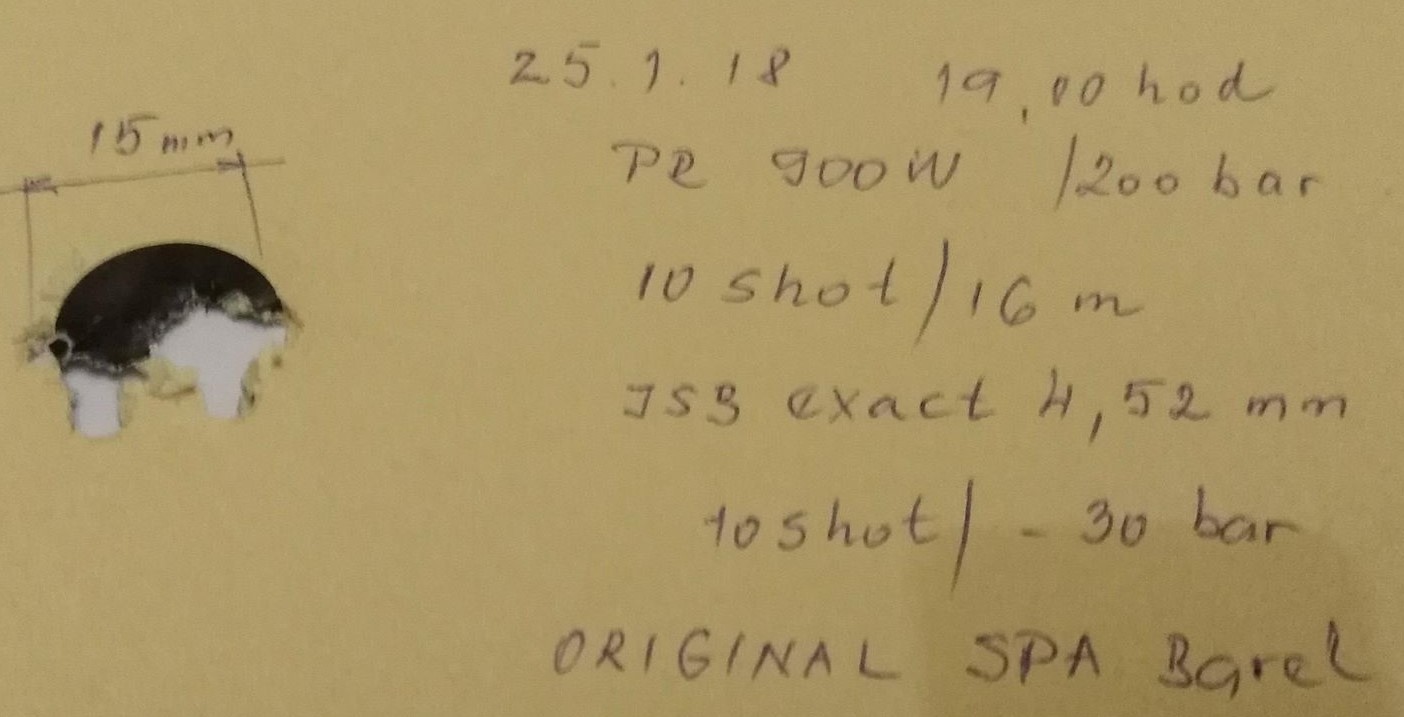 25.1.18 19,00 hod
15 mm
PR 900W /200 bar
10 shot/16 m
JSB exact 4,52 mm
10 shot/ - 30 bar
ORIGINAL SPA Barel